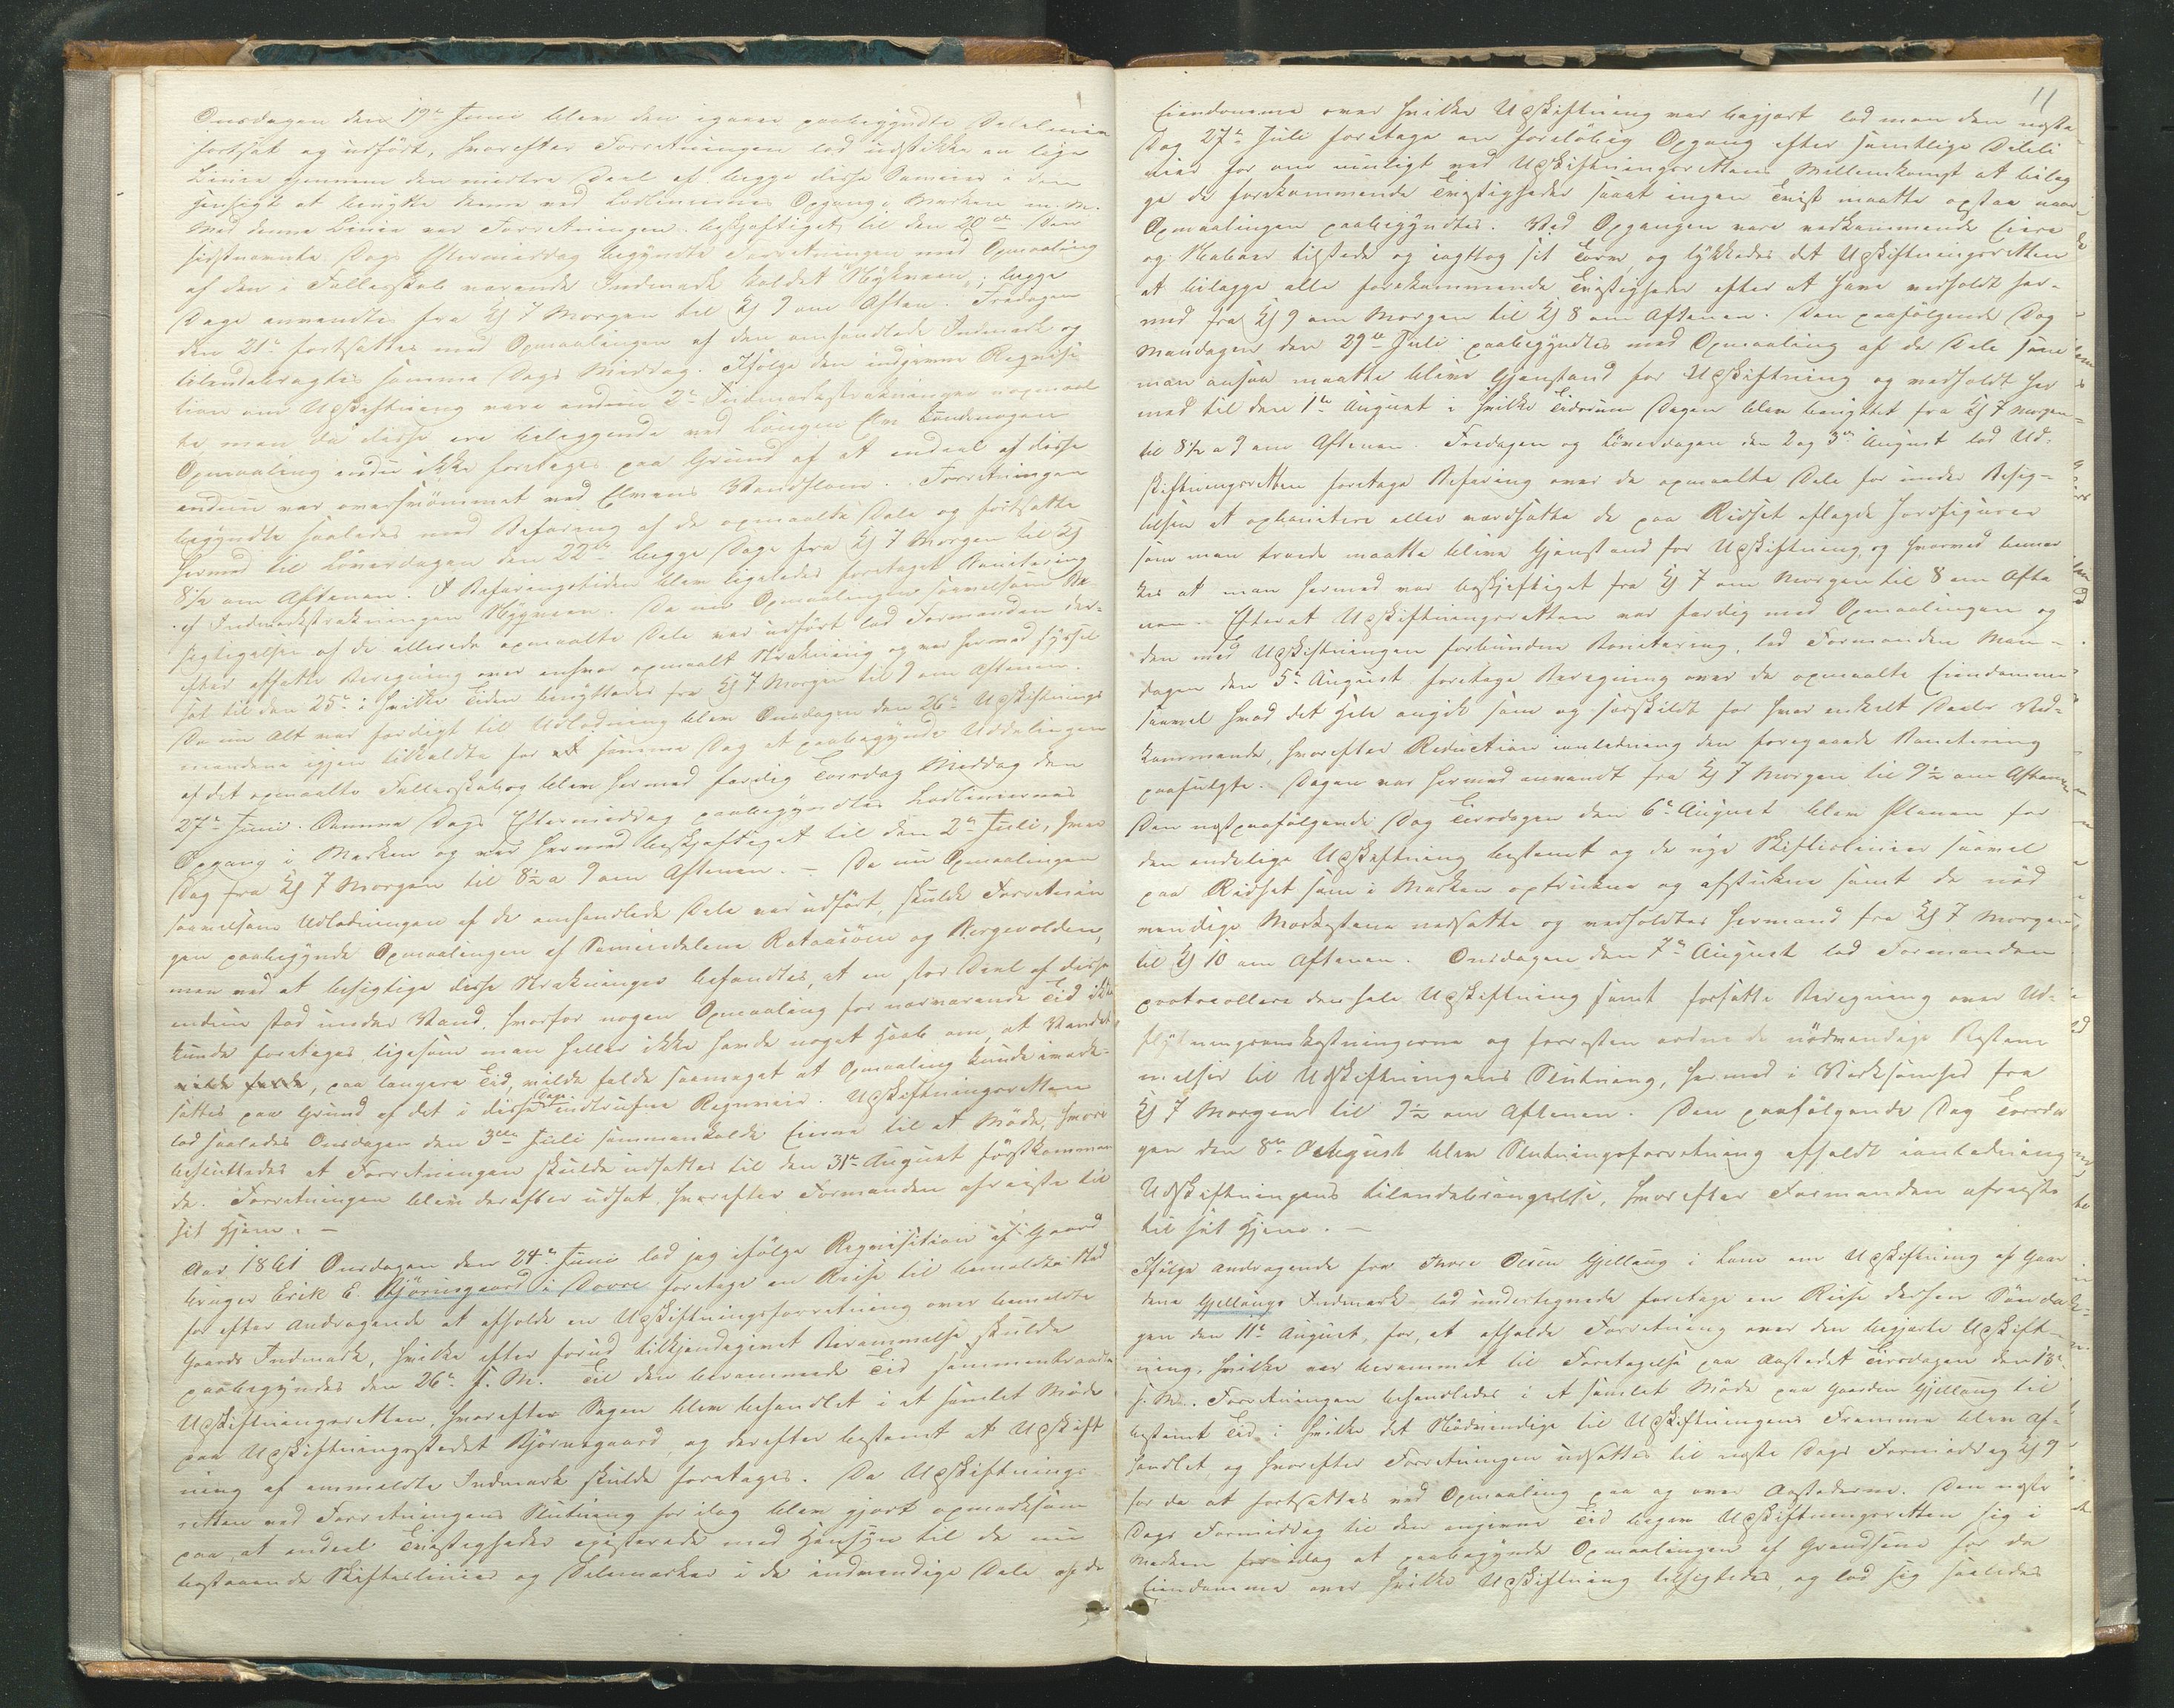 Onsdagen den 19de Juni blev den igaar paabegyndte Delelinie
fortsat og udført, hvorefter Forretningen lod udstikke en lige
Linie gjennem den midtre Deel af begge disse Sameier i den
Hensigt at benytte denne ved Lodliniernes Opgang i Marken m. M.
Med denne Linie var Forretningen beskjæftiget til den 20de Den
sidstnævnte Dags Eftermiddag begyndte Forretningen med Opmaaling
af den i Fælleskab værende Indmark kaldet Nygmoen, begge
Dage anvendtes fra Kl 7 Morgen til Kl 9 om Aften. Fredagen
den 21de fortsattes med Opmaalingen af den omhandlede Indmark og
tilendebragtes samme Dags Middag. Ifølge den indgivne Reqvisi-
tion om Udskiftning vare endnu 2de Indmarkstrækninger uopmaal
te, men da disse ere beliggende ved Lougen Elv kunde nogen
Opmaaling endnu ikke foretages paa Grund af at endeel af disse
endnu var oversvømmet ved Elvens Vandflom. Forretningen
begyndte saaledes med Befaring af de opmaalte Dele og fortsatte
hermed til Løverdagen den 22de begge Dage fra Kl 7 Morgen til Kl
8½ om Aftenen. I Befaringstiden blev ligeledes foretaget Bonitering
af Indmarkstrækningen Nygmoen. Da nu Opmaalingen saavelsom Be-
sigtigelsen af de allerede opmaalte Dele var udført lod Formanden der-
efter affatte Beregning over enhver opmaalt Strækning og var hermed syssel
sat til den 25de i hvilken Tiden benyttedes fra Kl 7 Morgen til 9 om Aftenen.
Da nu Alt var færdigt til Udlodning blev Onsdagen den 26de Udskiftnings
mændene igjen tilkaldte for at samme Dag at paabegynde Uddelingen
af det opmaalte Fælleskab og blev hermed færdig Torsdag Middag den
27de Juni. Samme Dags Eftermiddag paabegyndtes Lodliniernes
Opgang i Marken og var hermed beskjæftiget til den 2den Juli, hver
Dag fra Kl 7 Morgen til 8½ a 9 om Aftenen. – Da nu Opmaalingen
saavelsom Udlodningen af de omhandlede Dele var udført, skulde Forretnin
gen paabegynde Opmaalingen af Sameiedelene Rataasøien og Bergevolden,
men ved at besigtige disse Strækninger befandtes, at en stor Deel af disse
endnu stod under Vand, hvorfor nogen Opmaaling for nærværende Tid ikke
kunde foretages ligesom man heller ikke havde noget Haab om, at Vandet
vilde falde, paa længere Tid, vilde falde saameget at Opmaaling kunde iværk-
sættes paa Grund af det i disse Dage indtrufne Regnveir. Udskiftningsretten
lod saaledes Onsdagen den 3die Juli sammenkalde Eierne til et Møde, hvor
besluttedes at Forretningen skulde udsættes til den 31te August førstkommen
de. Forretningen blev derefter udsat, hvorefter Formanden afreiste til
sit Hjem. –
Aar 1861 Onsdagen den 24de Juni lod jeg ifølge Reqvisition af Gaard
bruger Erik E. Bjørnsgaard i Dovre foretage en Reise til bemeldte Sted
for efter Andragende at afholde en Udskiftningsforretning over bemeldte
Gaards Indmark, hvilke efter forud tilkjendegivet Berammelse skulde
paabegyndes den 26de s. M. Til den berammede Tid sammentraadte
Udskiftningsretten, hvorefter Sagen blev behandlet i et samlet Møde
paa Udskiftningsstedet Bjørnsgaard, og derefter bestemt at Udskift
ning af ommeldte Indmark skulde foretages. Da Udskiftnings
retten ved Forretningens Slutning for idag blev gjort opmærksom
paa, at endeel Tvistigheder existerede med Hensyn til de nu
bestaaende Skifteslinier og Delemærker i de indvendige Dele af de
11
Eiendomme over hvilke Udskiftning var begjært lod man den næste
Dag 27de Juli foretage en foreløbig Opgang efter samtlige Deleli
nier for om muligt ved Udskiftningsrettens Mellemkomst at bilæg
ge de forekommende Tvistigheder saaat ingen Tvist maatte opstaa naar
Opmaalingen paabegyndtes. Ved Opgangen vare vedkommende Eiere
og Naboer tilstede og iagttog sit Tarv, og lykkedes det Udskiftningsretten
at bilægge alle forekommende Tvistigheder efter at have vedholdt her-
med fra Kl 9 om Morgen til Kl 8 om Aftenen. Den paafølgende Dag
Mandagen den 29de Juli paabegyndtes med Opmaaling af de Dele som
man ansaa maatte blive Gjenstand for Udskiftning og vedholdt her
med til den 1ste August i hvilke Tidsrum Dagen blev benyttet fra Kl 7 Morgen
til 8½ a 9 om Aftenen. Fredagen og Løverdagen den 2 og 3die August lod Ud-
skiftningsretten foretage Befaring over de opmaalte Dele for under Besig-
telsen at opbonitere eller værdsætte de paa Ridset aflagde Jordfigurer
som man troede maatte blive Gjenstand for Udskiftning, og hvorved bemær
kes at man hermed var beskjæftiget fra Kl 7 om Morgen til 8 om Afte
nen. Efterat Udskiftningsretten var færdig med Opmaalingen og
den med Udskiftningen forbundne Bonitering, lod Formanden Man-
dagen den 5te August foretage Beregning over de opmaalte Eiendomme
saavel hvad det Hele angik som og særskildt for hver enkelt Deels Ved-
kommende, hvorefter Reduction i anledning den foregaaede Bonitering
paafulgte. Dagen var hermed anvendt fra Kl 7 Morgen til 9½ om Aftenen
Den næstpaafølgende Dag Tirsdagen den 6te August blev Planen for
den endelige Udskiftning bestemt og de nye Skifteslinier saavel
paa Ridset som i Marken optrukne og afstukne samt de nød
vendige Markestene nedsatte og vedholdtes hermed fra Kl 7 Morgen
til Kl 10 om Aftenen. Onsdagen den 7de August lod Formanden
protocollere den hele Udskiftning samt forfatte Beregning over Ud-
flytningsomkostningerne og forresten ordnede nødvendige Bestem
melser til Udskiftningens Slutning, hermed i Virksomhed fra
Kl 7 Morgen til 9½ om Aftenen. Den paafølgende Dag Torsda
gen den 8de August blev Slutningsforretning afholdt i anledning
Udskiftningens tilendebringelse, hvorefter Formanden afreiste
til sit Hjem. –
Ifølge Andragende fra Thore Olsen Gjeilaug i Lom om Udskiftning af Gaar
dene Gjeilaugs Indmark lod undertegnede foretage en Reise dertil Sønda
gen den 11te August, for, at afholde Forretning over den begjærte Udskift-
ning, hvilke var berammet til Foretagelse paa Aastedet Tirsdagen den 13de
s. M. Forretningen behandledes i et samlet Møde paa Gaarden Gjeilaug til
bestemt Tid i hvilke det Nødvendige til Udskiftningens Fremme blev af-
handlet og hvorefter Forretningen udsattes til næste Dags Formiddag Kl 9
for da at fortsættes ved Opmaaling paa og over Aastederne. Den næste
Dags Formiddag til den angivne Tid begav Udskiftningsretten sig i
Marken for idag at paabegynde Opmaalingen af Grændsene for de
Eiendomme over hvilke Udskiftning besigtedes, og lod sig saaledes